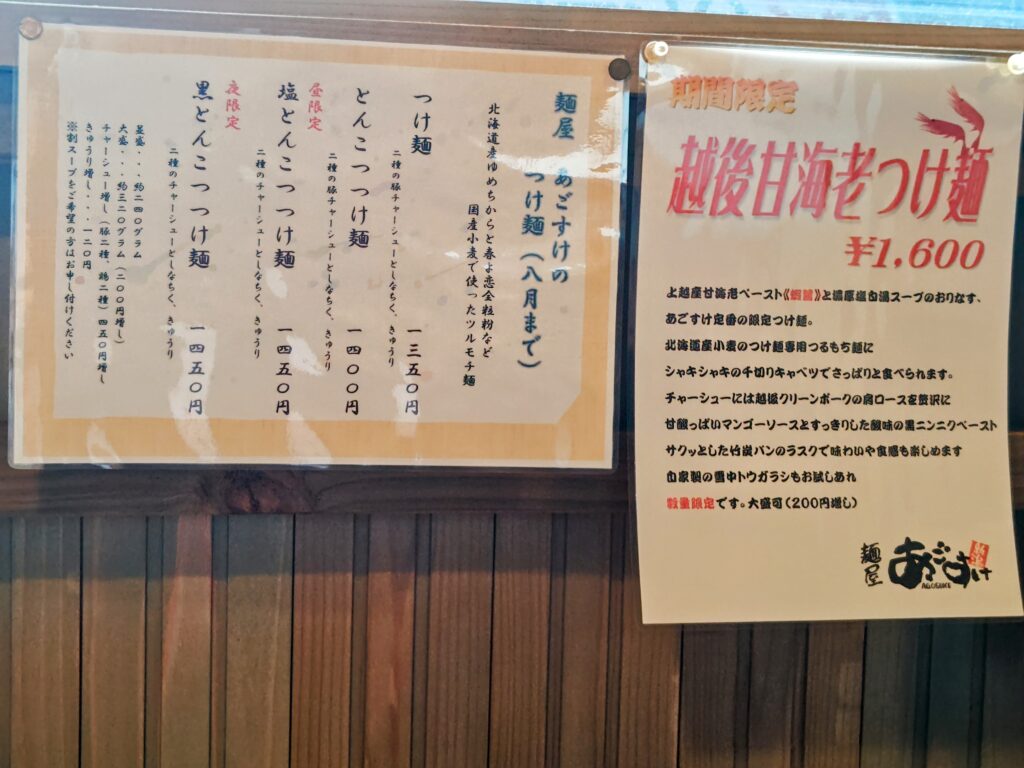 麺屋 あごすけの
つけ麺(八月まで)
北海道産ゆめちからと春よ恋全粒粉など
国産小麦で使ったツルモチ麺
つけ麺 一三五〇円
二種の豚チャーシューとしなちく、きゅうり
とんこつつけ麺 一四〇〇円
二種の豚チャーシューとしなちく、きゅうり
昼限定
塩とんこつつけ麺 一四五〇円
二種のチャーシューとしなちく、きゅうり
夜限定
黒とんこつつけ麺 一四五〇円
二種のチャーシューとしなちく、きゅうり
並盛・・・約二四〇グラム
大盛・・・約三二〇グラム(二〇〇円増し)
チャーシュー増し(豚二種、鶏二種)四五〇円増し
きゅうり増し・・・一二〇円
※割スープをご希望の方はお申し付けください
期間限定
越後甘海老つけ麺
¥1,600
上越産甘海老ペースト《蝦醤》と濃厚塩白湯スープのおりなす、
あごすけ定番の限定つけ麺。
北海道産小麦のつけ麺専用つるもち麺に
シャキシャキの千切りキャベツでさっぱりと食べられます。
チャーシューには越後クリーンポークの肩ロースを贅沢に
甘酸っぱいマンゴーソースとすっきりした酸味の黒ニンニクペースト
サクッとした竹炭パンのラスクで味わいや食感も楽しめます
自家製の雪中トウガラシもお試しあれ
数量限定です。大盛可(200円増し)
麺屋 あごすけ
AGOSUKE